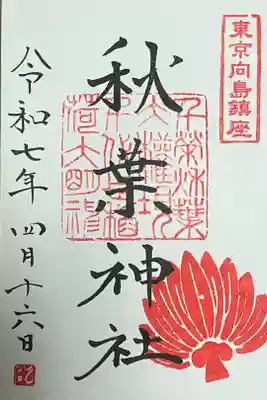 東京向島鎮座
秋葉神社
令和七年四月十六日